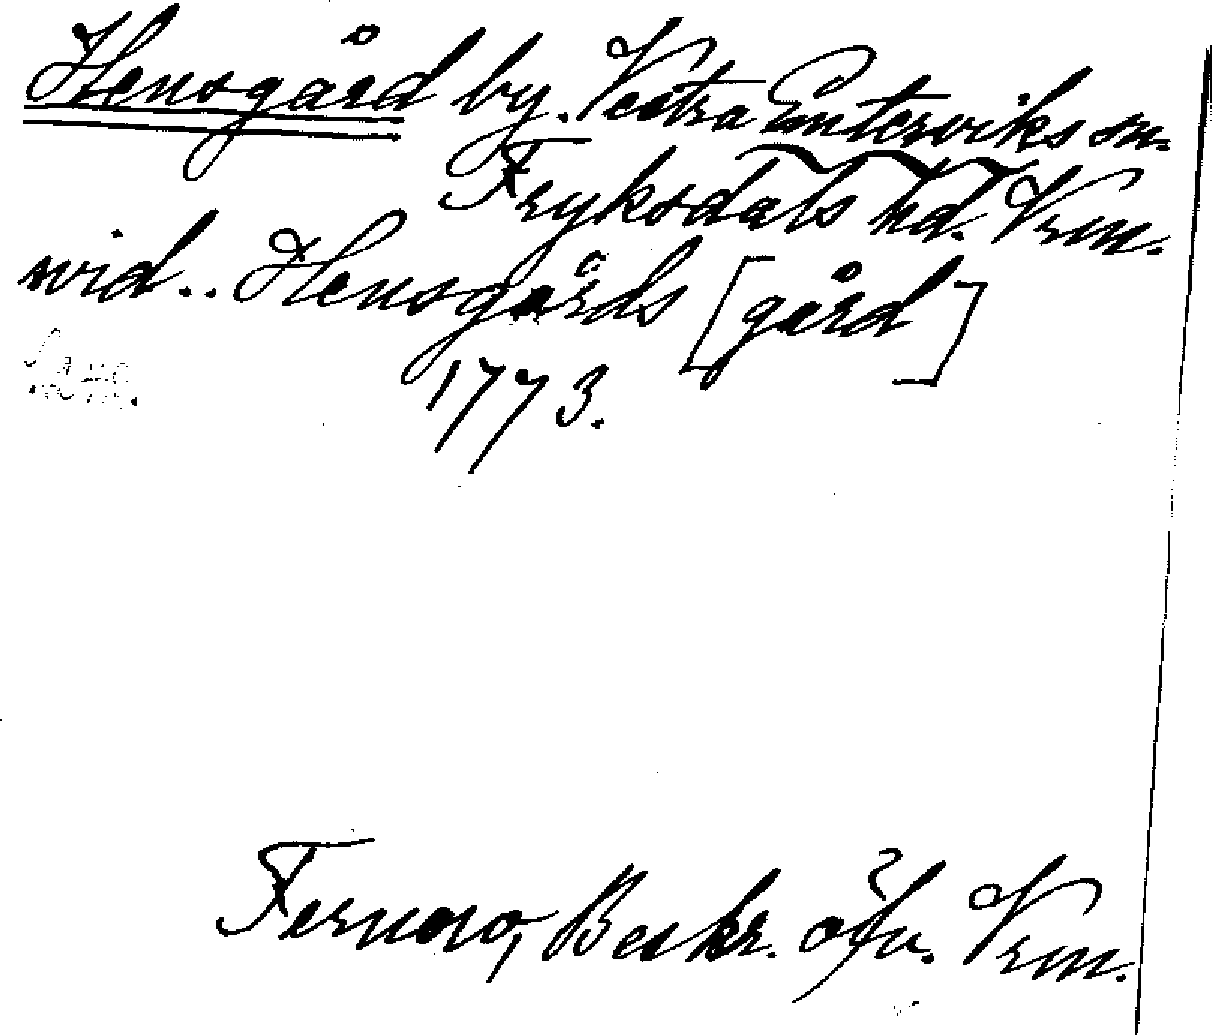 Hensgård by. Vestra Emterviks sn.
Fryksdals hd. Vrm.
wid.. Hensgårds [gård]
1773.
Fernow, Beskr. öfv. Vrm.